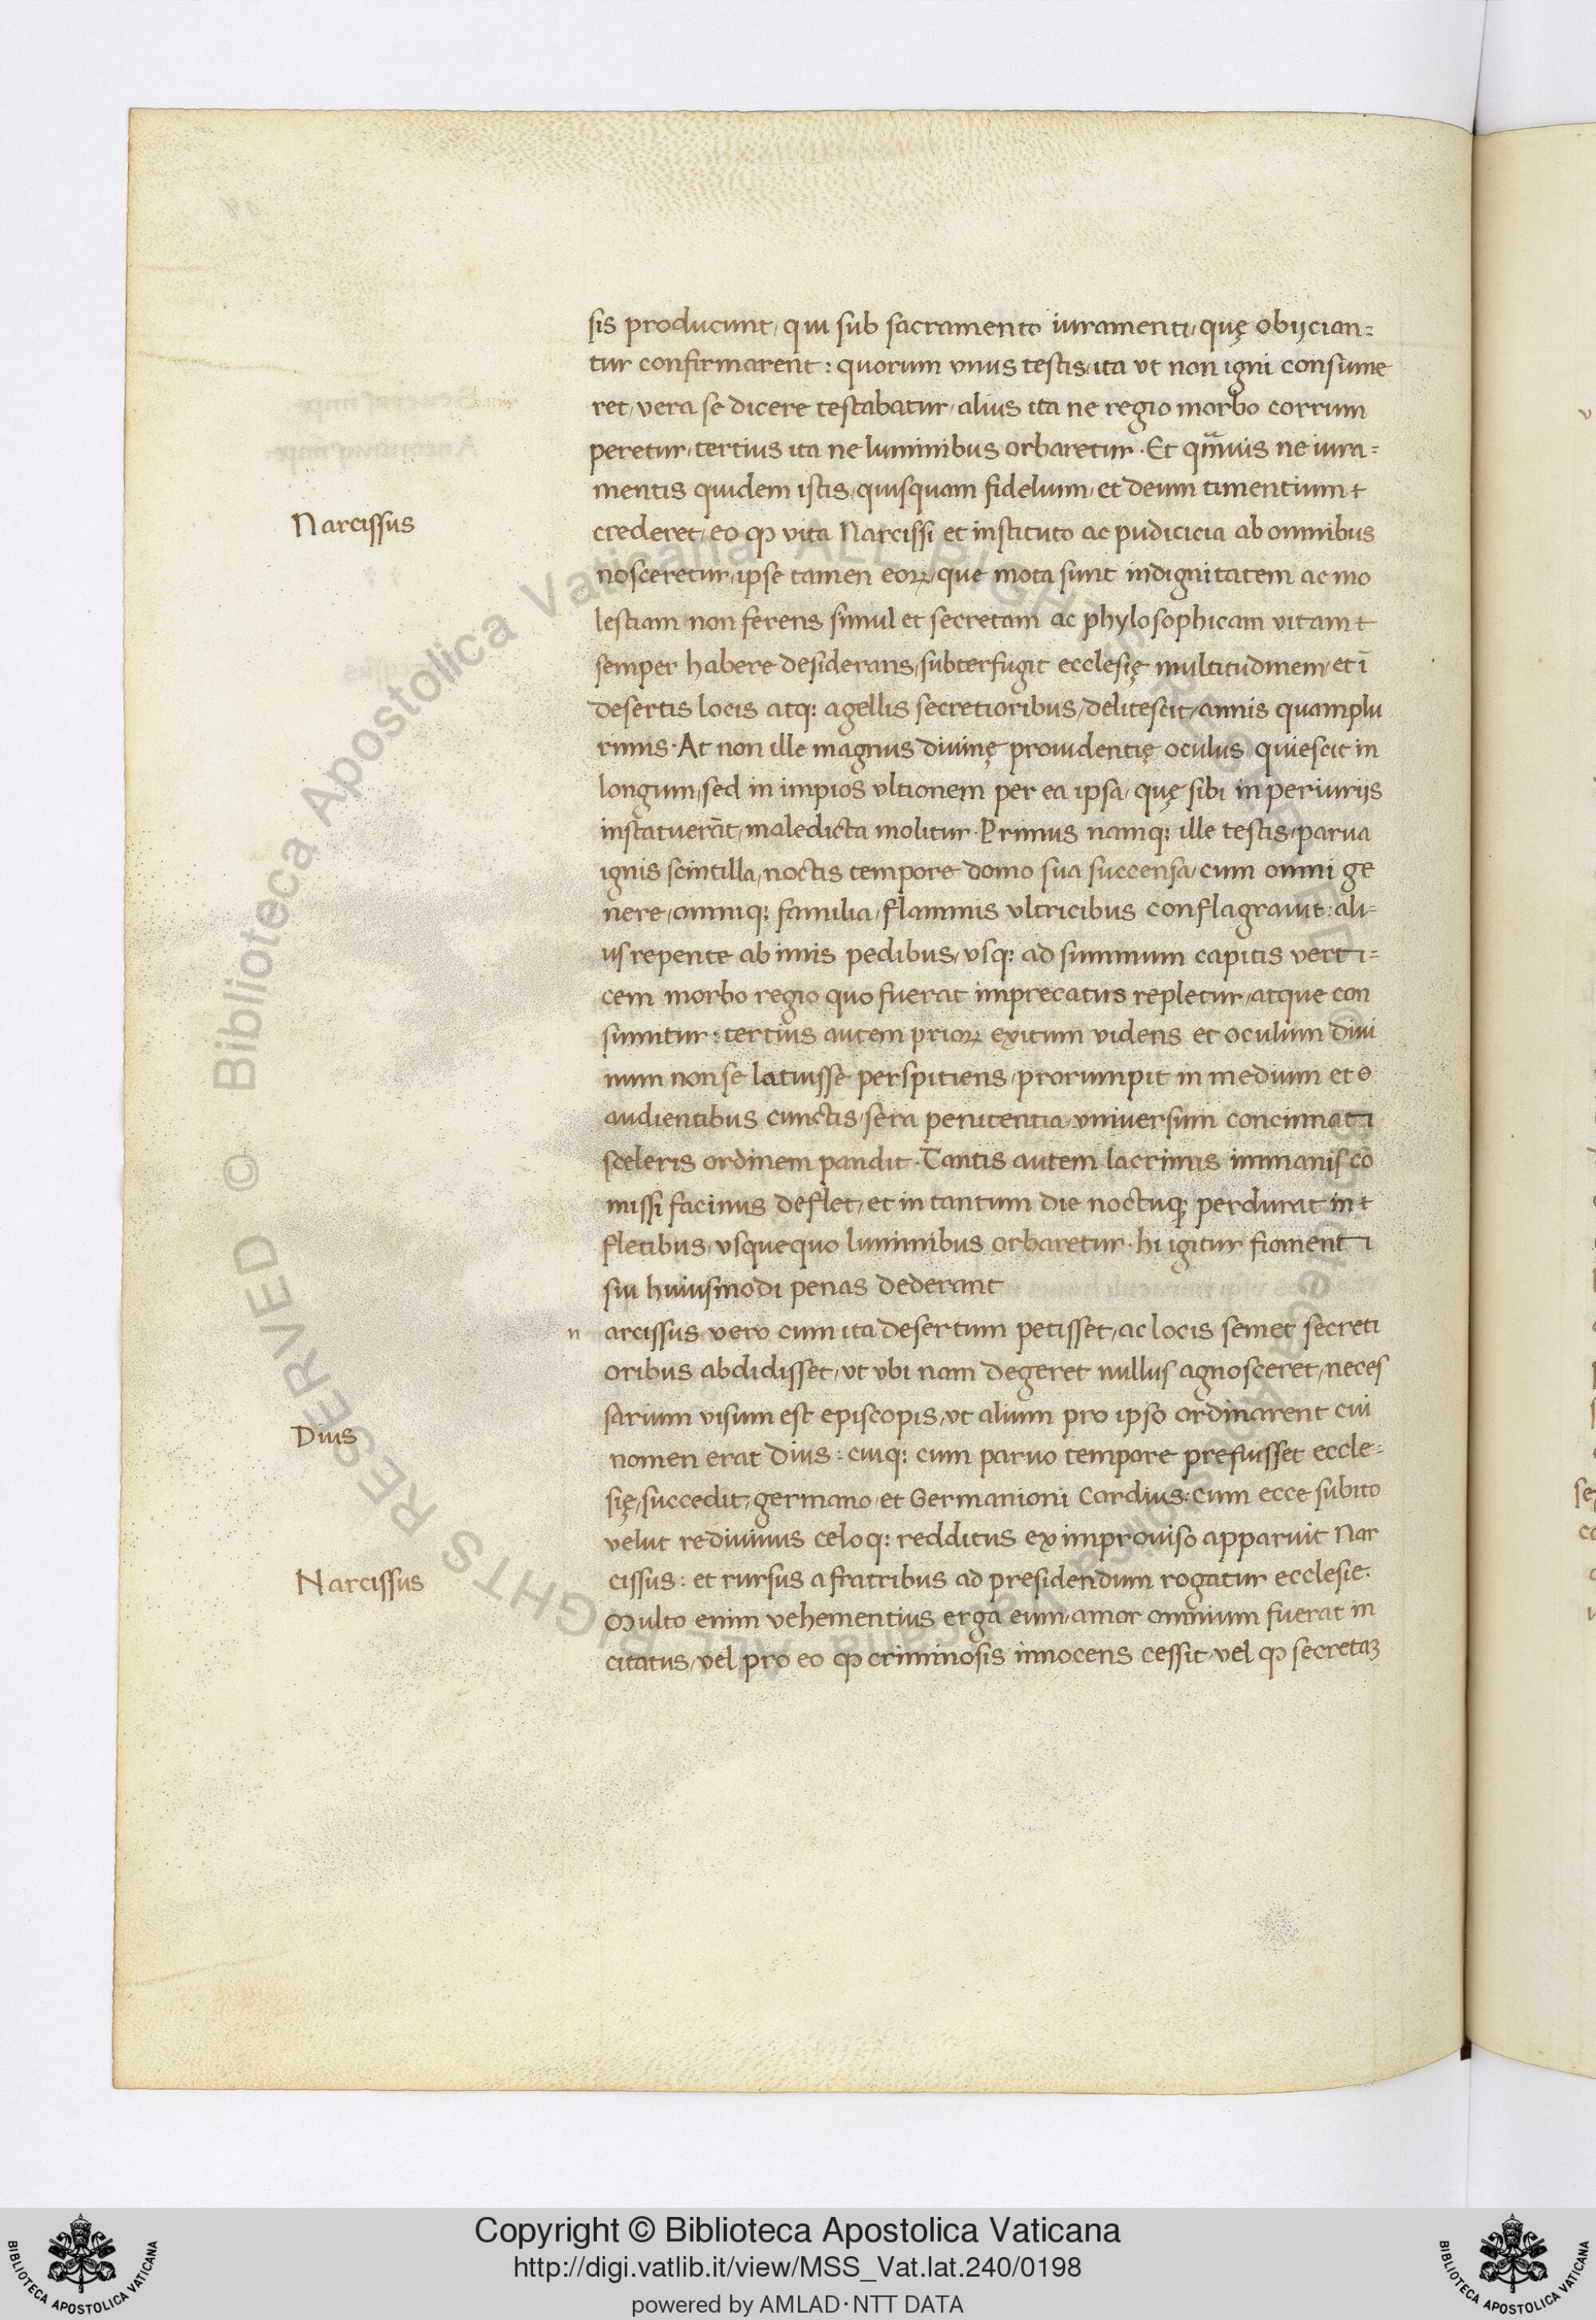 sis producunt, qui sub sacramento iuramenti, quę obijcian=
tur confirmarent: quorum vnus testis, ita vt non igni consume
ret, vera se dicere testabatur, alius ita ne regio morbo corrum
peretur, tertius ita ne luminibus orbaretur. Et qm̄uis ne iura=
mentis quidem istis, quisquam fidelium, et deum timentium t
Narcissus
crederet, eo ꝙ vita Narcissi et instituto ac pudicicia ab omnibus
nosceretur, ipse tamen eoꝝ, que mota sunt indignitatem ac mo
lestiam non ferens simul et secretam ac phylosophicam vitam t
semper habere desiderans, subterfugit ecclesię multitudinem, et ī
desertis locis atq: agellis secretioribus, delitescit, annis quamplu
rimis. At non ille magnus diuinę prouidentię oculus quiescit in
longum, sed in impios vltionem per ea ipsa, quę sibi in periurijs
instatuerāt, maledicta molitur. Primus namq: ille testis, parua
ignis scintilla, noctis tempore domo sua succensa, cum omni ge
nere, omniq: familia, flammis vltricibus conflagrauit: ali=
us repente ab imis pedibus, vsq: ad summum capitis verti=
cem morbo regio quo fuerat imprecatus repletur, atque con
sumitur: tertius autem prioꝝ exitum videns et oculum diui
num non se latuisse perspitiens, prorumpit in medium et o
audientibus cunctis, sera penitentia, vniuersum concinnati
sceleris ordinem pandit. Tantis autem lacrimis immanis cō
missi facinus deflet, et in tantum die noctuq; perdurat in t
fletibus, vsquequo luminibus orbaretur. hi igitur fiomenti
sui huiusmodi penas dederant
n arcissus vero cum ita desertum petisset, ac locis semet secreti
oribus abdidisset, vt vbi nam degeret nullus agnosceret, neces
sarium visum est episcopis, vt alium pro ipso ordinarent cui
Dius
nomen erat Dius: cuiq: cum paruo tempore prefuisset eccle=
się, succedit, germano, et Germanioni Cordius: cum ecce subito
velut rediuiuus celoq: redditus ex improuiso apparuit Nar
Narcissus
cissus: et rursus a fratribus ad presidendum rogatur ecclesie.
Multo enim vehementius erga eum, amor omnium fuerat in
citatus, vel pro eo ꝙ criminosis innocens cessit, vel ꝙ secretaꝫ
© Biblioteca Apostolica Vaticana ALL RIGHTS RESERVED
Copyright © Biblioteca Apostolica Vaticana
http://digi.vatlib.it/view/MSS_Vat.lat.240/0198
powered by AMLAD·NTT DATA
BIBLIOTECA APOSTOLICA VATICANA
BIBLIOTECA APOSTOLICA VATICANA